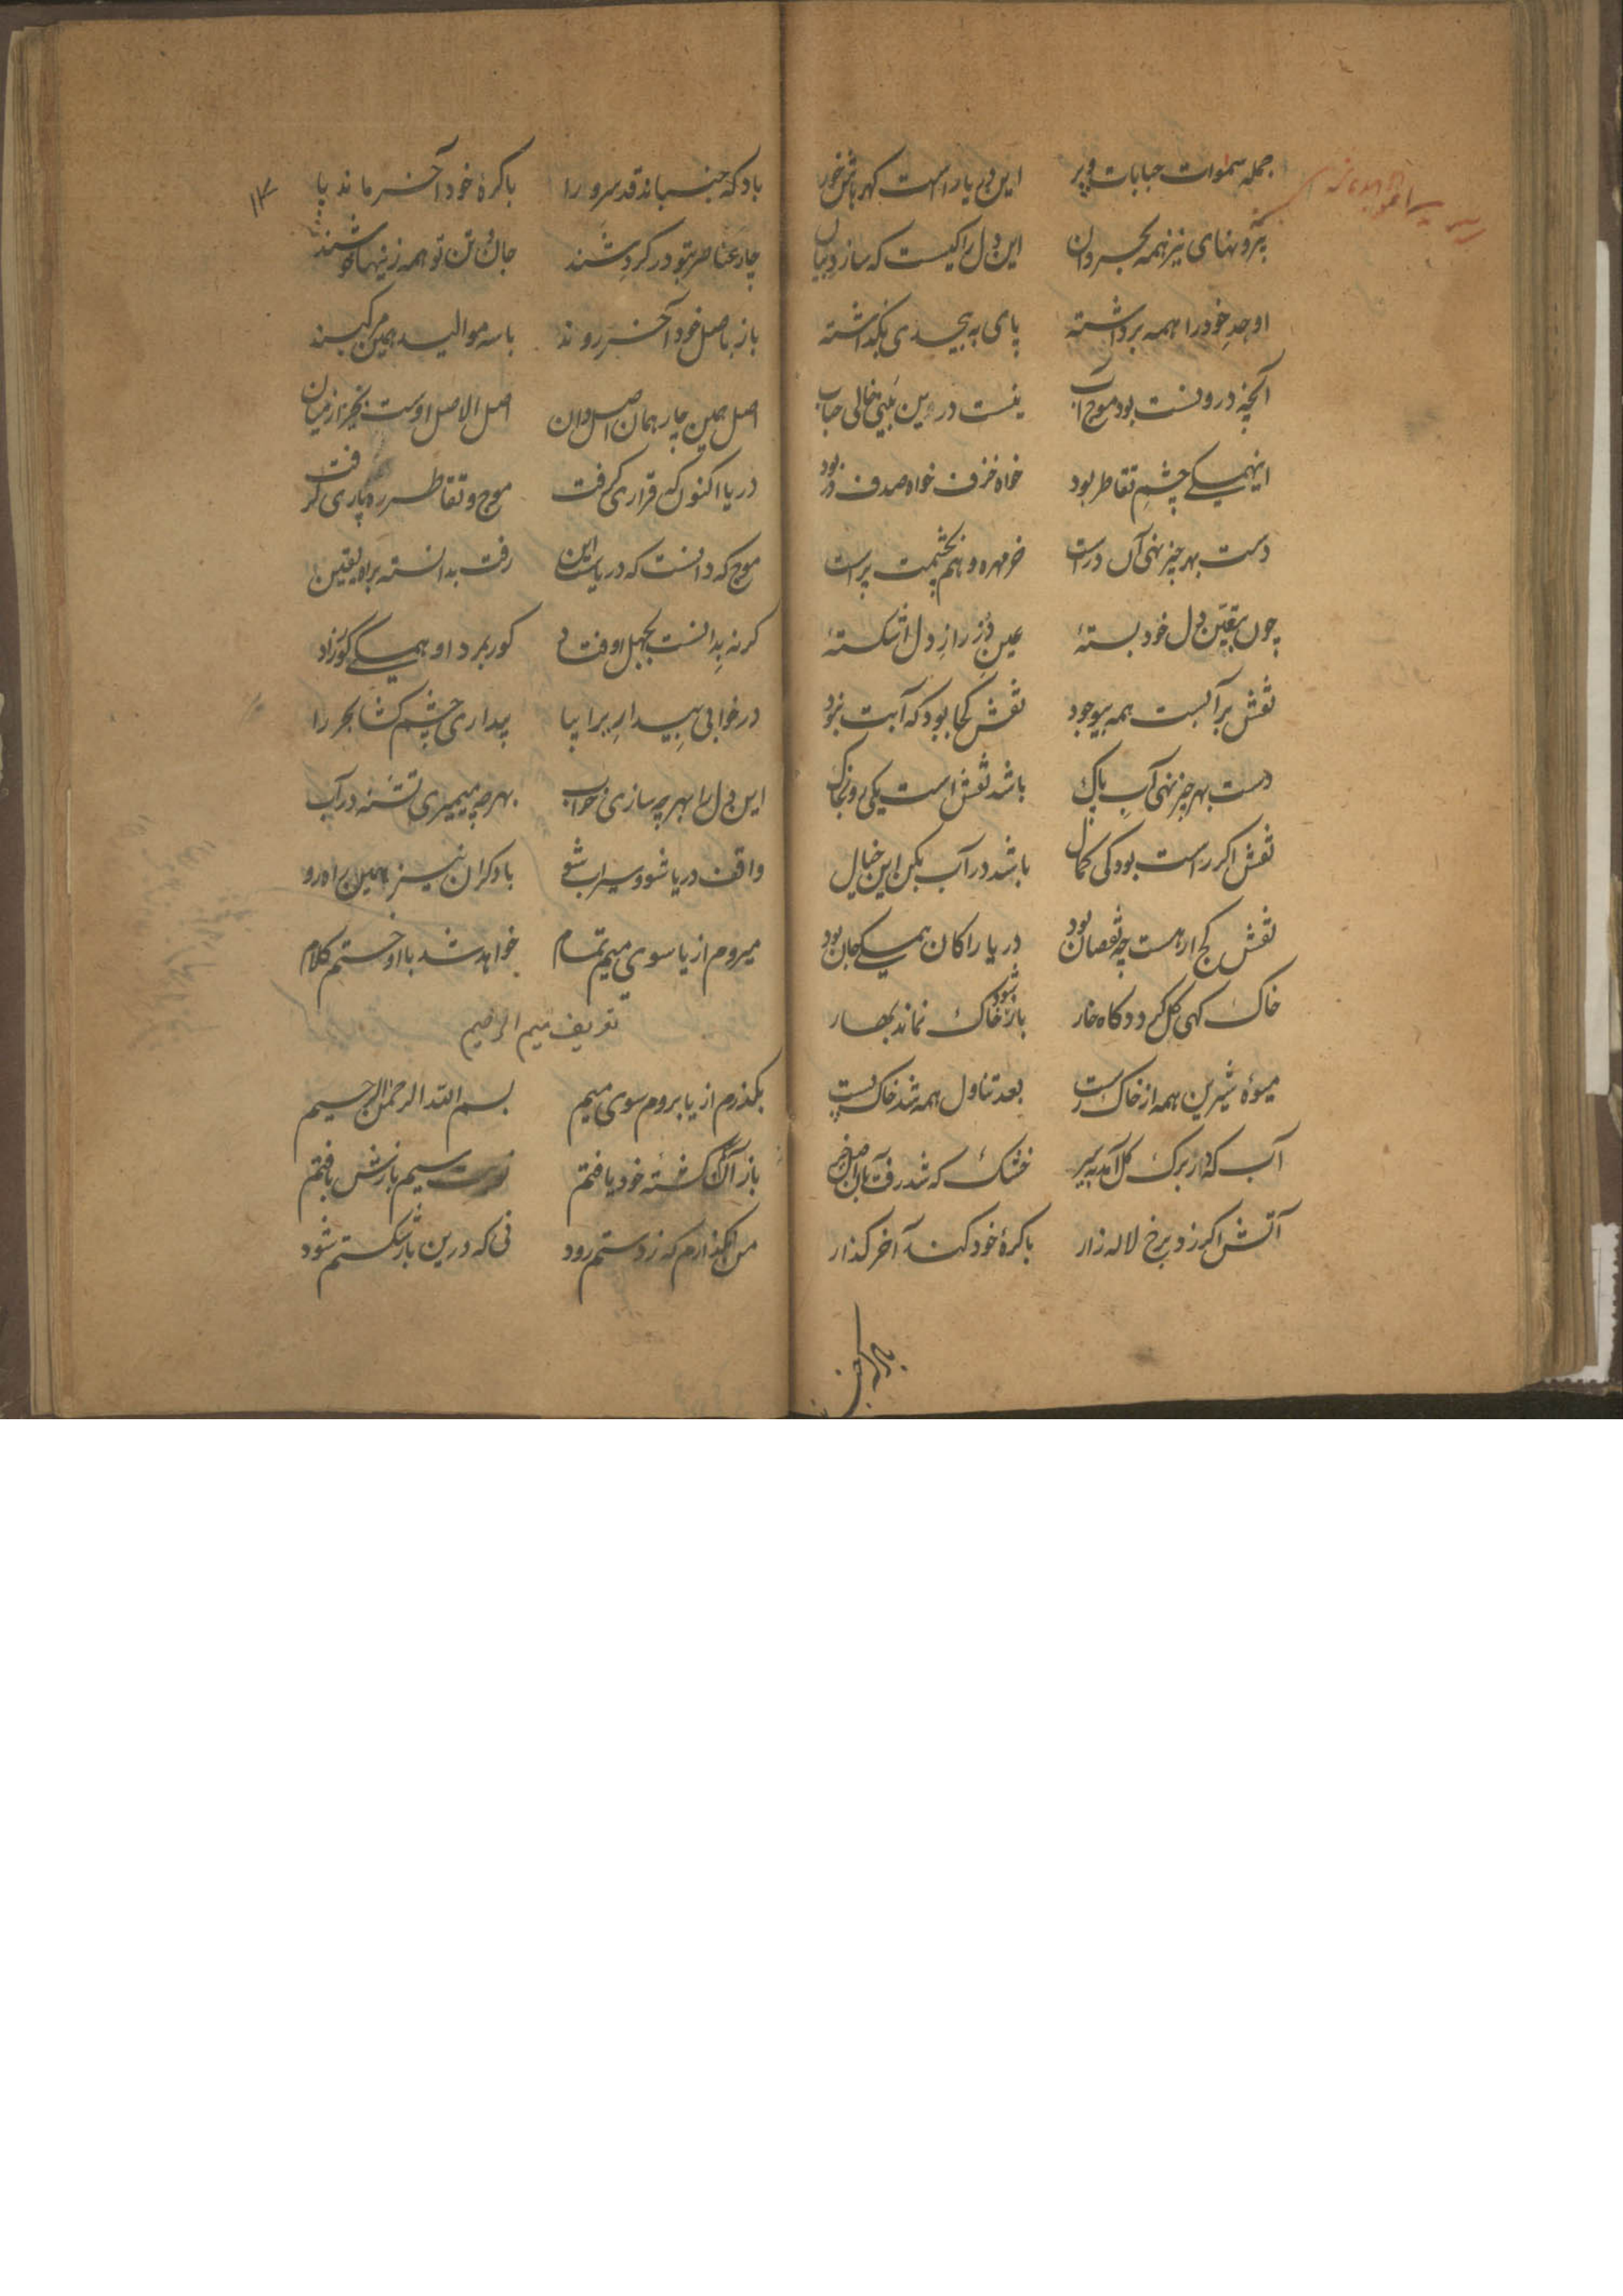 جمله سموات حبابات و پر این دم یا راست گهر باش خور
بیرونهای نیز همه بحر دان این دل را کیست که سازد بیان
او حد خود را همه برداشته پای به بیحدی بگذاشته
آنچه دروست بود موج آب نیست درو بین بینی خالی حباب
اینهمگی چشم تقاطر بود خواه خزف خواه صدف در بود
دست بهر چیز نهی آن دراست خرمهره وهم بچشمت پر است
چون بیقین دل خود بستهٔ عین دُر از راز دل اشکستهٔ
نقش بر آبست همه بیوجود نقش کجا بود که آبت نبود
دست بهر چیز نهی آب پاک باشد نقش است یکی روز خاک
نقش اگر راست بود کی کمال باشد در آب بکن این خیال
نقش کج ار هست چه نقصان بود دریا را کان همگی جان بود
خاک گهی گل گردد گاه خار باز شود خاک نماند بهار
میوهٔ شیرین همه از خاک رست بعد تناول همه شد خاک پست
آب که از برگ گل آمد بسر خشک که شد رفت بآن اصل
آتش اگر زد برخ لاله زار باکرهٔ خود کند آخر گذار
باد که جنباند قد سرو را باکرهٔ خود آخر ماند پا
۱۳
چار عناصر بتو در گرد شدند جان و تن تو همه زینها شدند
باز باصل خود آخر روند با سه موالید همین مرکبند
اصل همین چار همان اصل دان اصل الاصل اوست نگر از میان
دریا اکنون که قراری گرفت موج و تقاطر ره یاری گرفت
موج که دانست که دریاست این رفت بدانسته براه یقین
گر نه بدانست بجهل اوفتاد کور برد او همگی کور زاد
در خوابی بیدار برا بیا بیداری چشم گشا بحر را
این دل را بهر چه سازی خراب بهر چه میمیری تشنه در آب
واقف دریا شو و سیراب شو با دگران نیز همین راه رو
میروم از یا سوی میم تمام خواهد شد با او ختم کلام
تعریف میم الرحیم
بگذرم از یا بروم سوی میم بسم الله الرحمن الرحیم
باز آن گمگشتهٔ خود یافتم سیم بازش یافتم
من نگذارم که ز دستم رود نی که درین باز شکستم شود